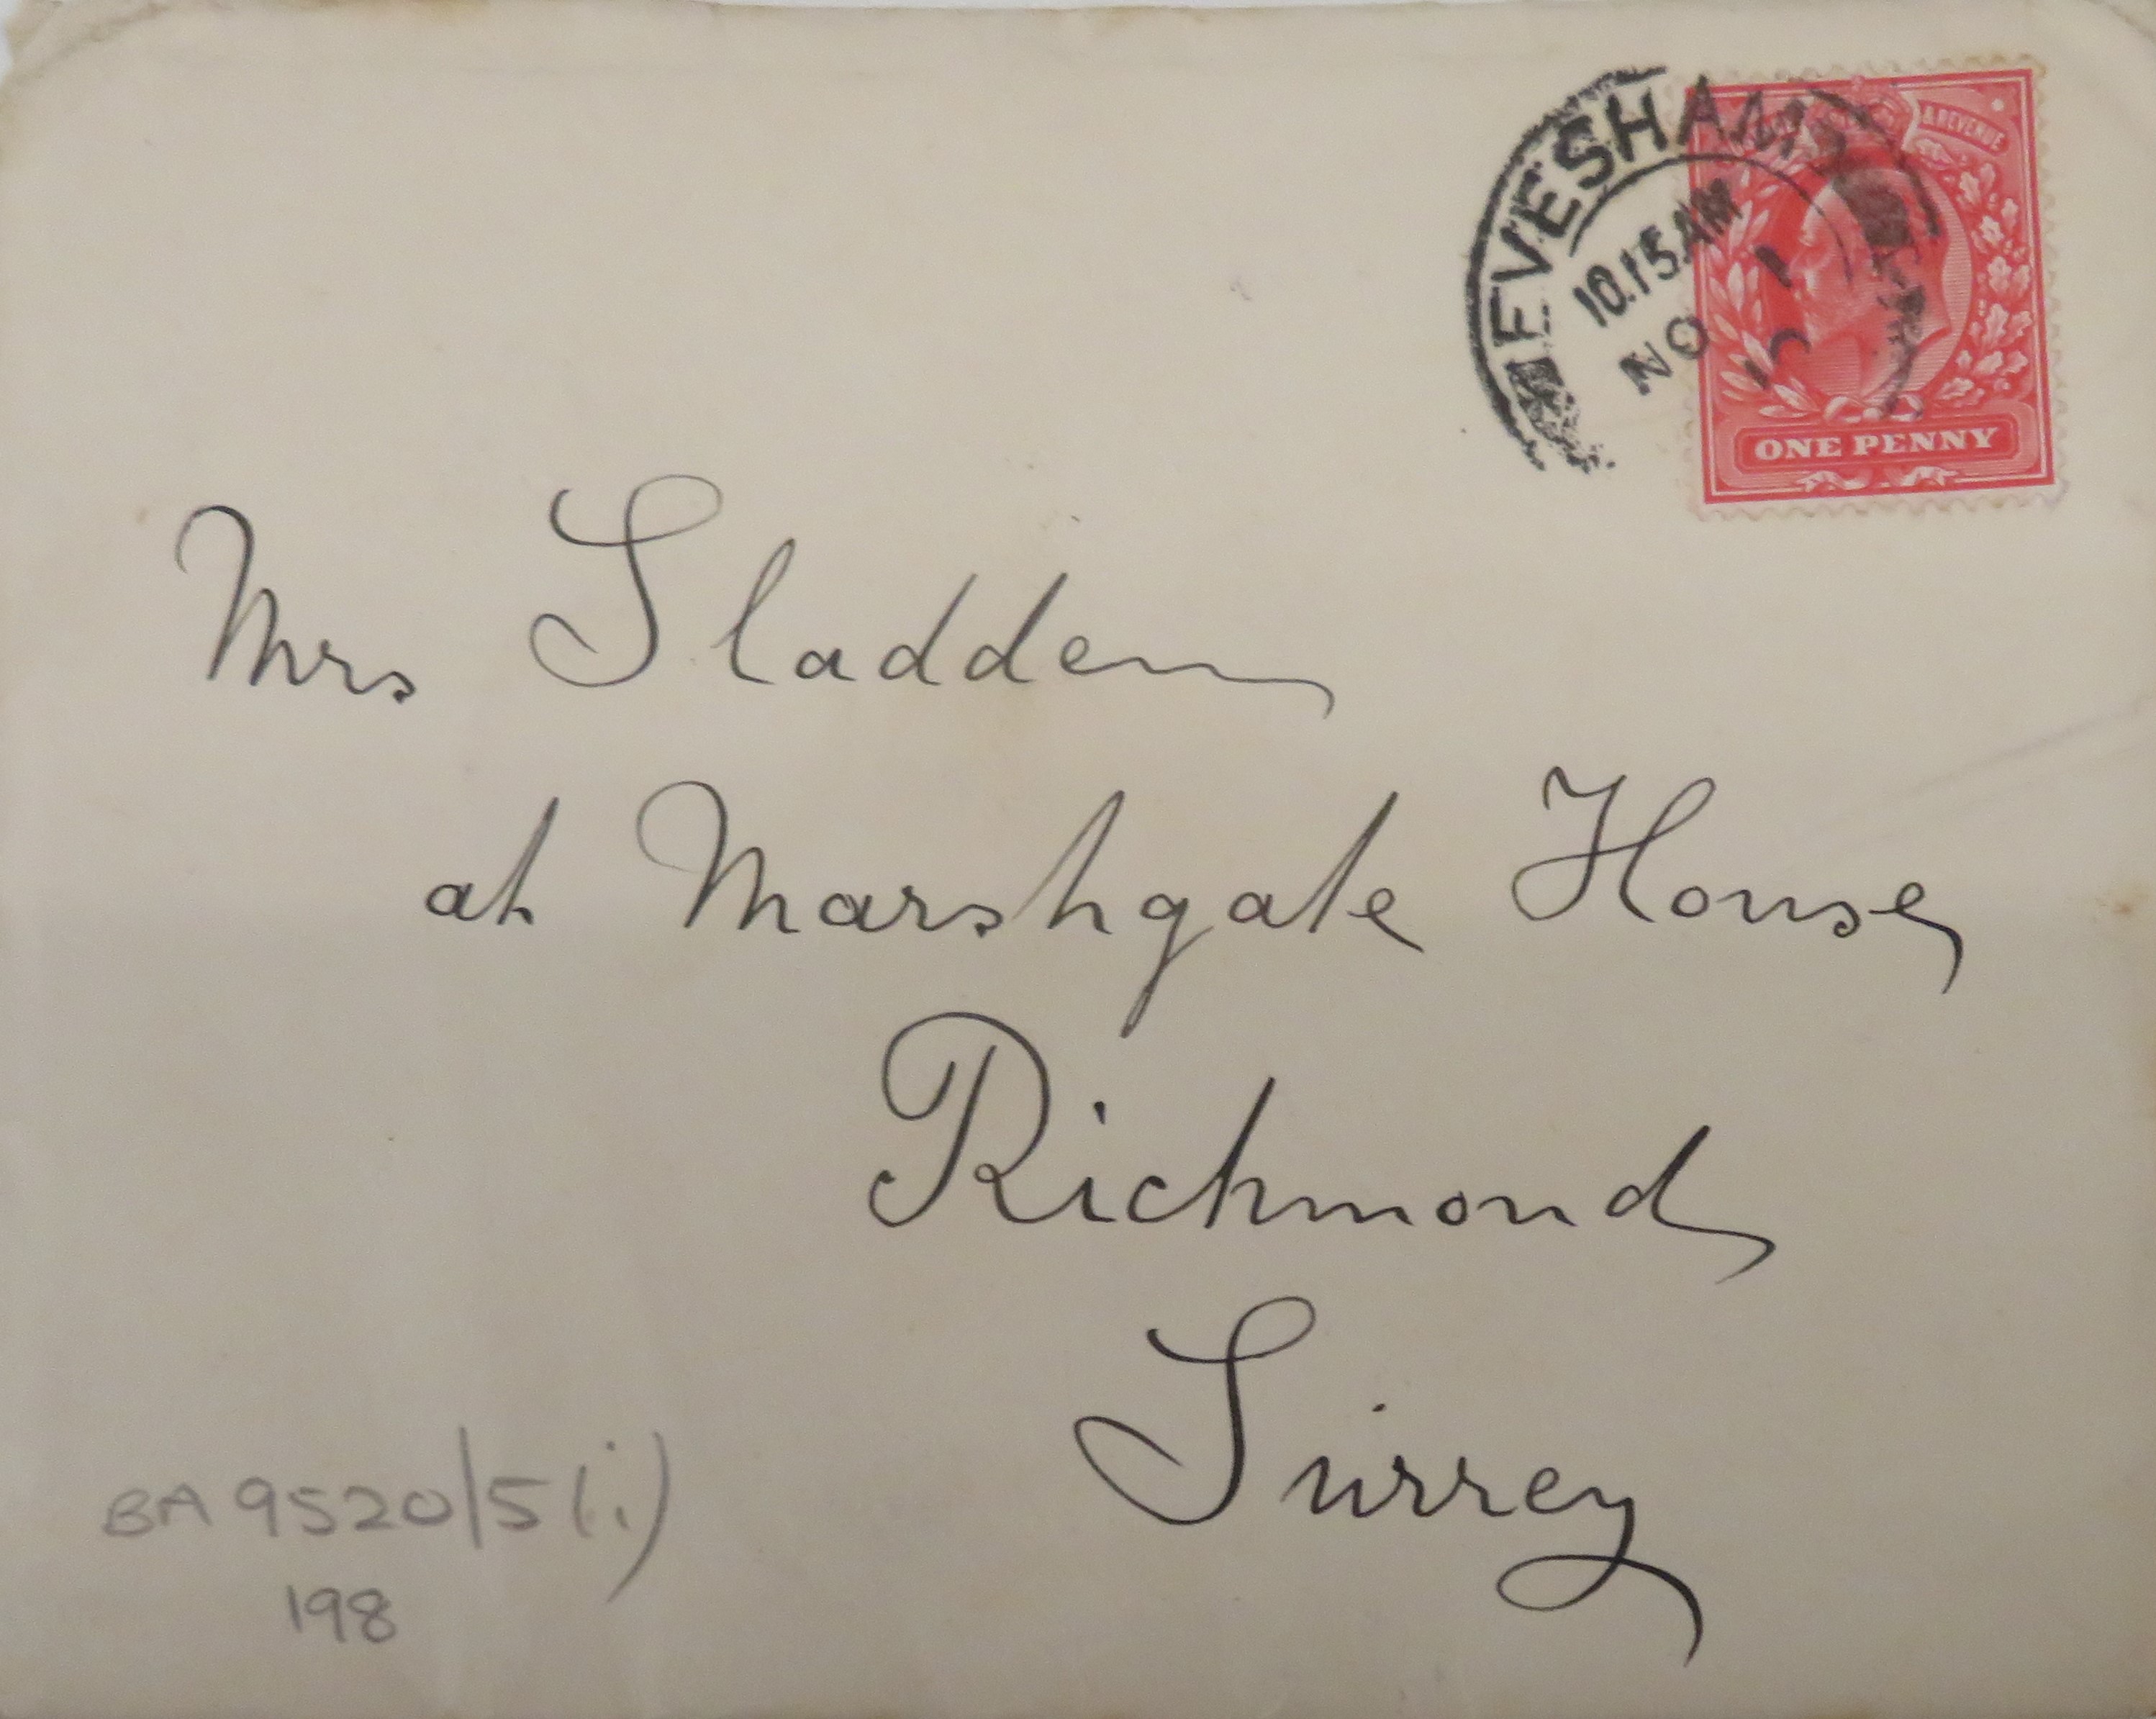 EVESHAM
10.15AM
NO 1
& REVENUE
ONE PENNY
Mrs Sladden
at Marshgate House
Richmond
Surrey
BA 9520/5(i)
198